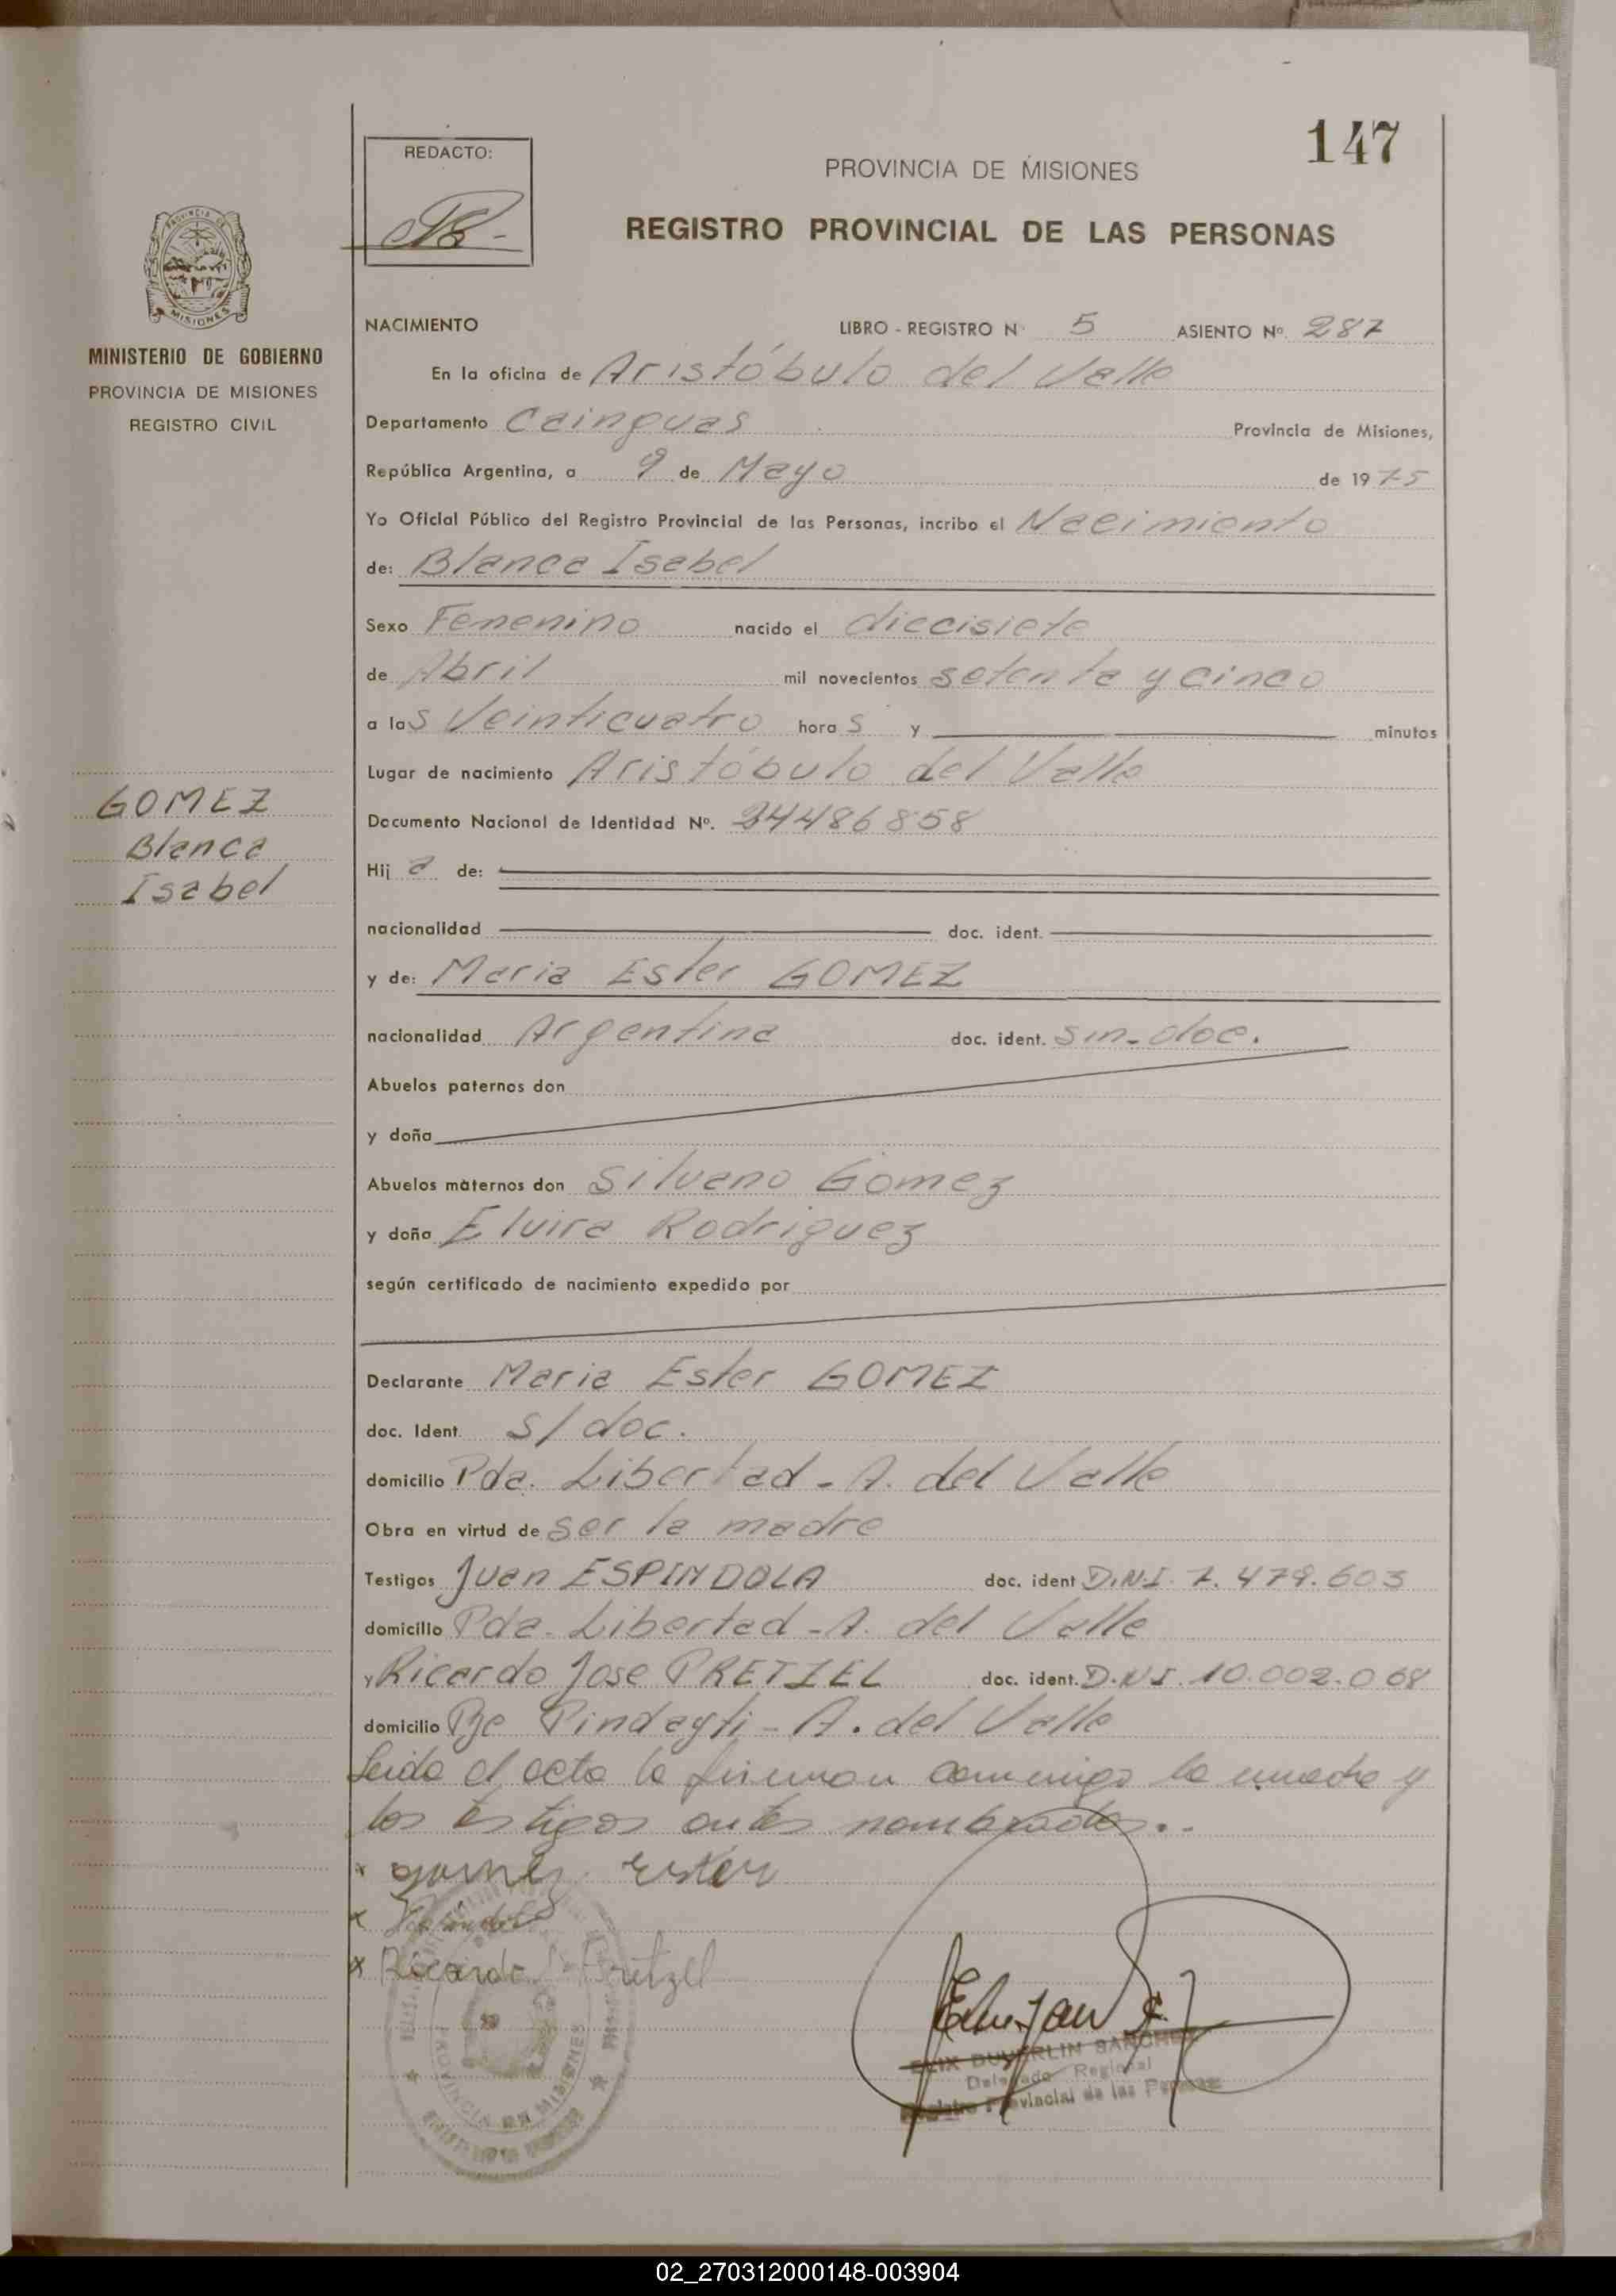 147
REDACTO:
PROVINCIA DE MISIONES
REGISTRO PROVINCIAL DE LAS PERSONAS
MINISTERIO DE GOBIERNO
PROVINCIA DE MISIONES
REGISTRO CIVIL
NACIMIENTO LIBRO - REGISTRO Nº 5 ASIENTO Nº. 287
En la oficina de Aristóbulo del Valle
Departamento Cainguas Provincia de Misiones,
República Argentina, a 9 de Mayo de 1975
Yo Oficial Público del Registro Provincial de las Personas, incribo el Nacimiento
de: Blanca Isabel
Sexo Femenino nacido el diecisiete
de Abril mil novecientos setenta y cinco
a las Veinticuatro horas y minutos
Lugar de nacimiento Aristóbulo del Valle
GOMEZ
Blanca
Isabel
Documento Nacional de Identidad Nº. 24486858
Hija de:
nacionalidad doc. ident.
y de: Maria Ester GOMEZ
nacionalidad Argentina doc. ident. sin-doc.
Abuelos paternos don
y doña
Abuelos maternos don Silvano Gomez
y doña Elvira Rodriguez
según certificado de nacimiento expedido por
Declarante Maria Ester GOMEZ
doc. Ident. s/doc.
domicilio Pda. Libertad - A. del Valle
Obra en virtud de ser la madre
Testigos Juan ESPINDOLA doc. ident D.N.I. 7.479.603
domicilio Pda. Libertad - A. del Valle
y Ricardo Jose PRETZEL doc. ident. D.N.I. 10.002.068
domicilio Pje Pindayti - A. del Valle
Leida el acta la firman conmigo la madre y
los testigos antes nombrados..
x gomez ester
x
x Ricardo J Pretzel
PROVINCIA DE MISIONES
SANCHEZ
Delegado Regional
Registro Provincial de las Personas
02_270312000148-003904